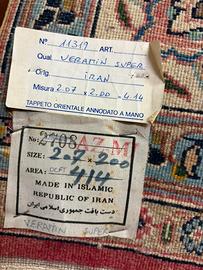 N° 11319 ART.
Qual. VERAMIN SUPER
Orig. IRAN
Misura 2.07 x 2.00 = 4.14
TAPPETO ORIENTALE ANNODATO A MANO
No: 5708 AZ.M
SIZE: 207 x 200
AREA: 414
MADE IN ISLAMIC
REPUBLIC OF IRAN
دست بافت جمهوری اسلامی ایران
VERAMIN SUPER